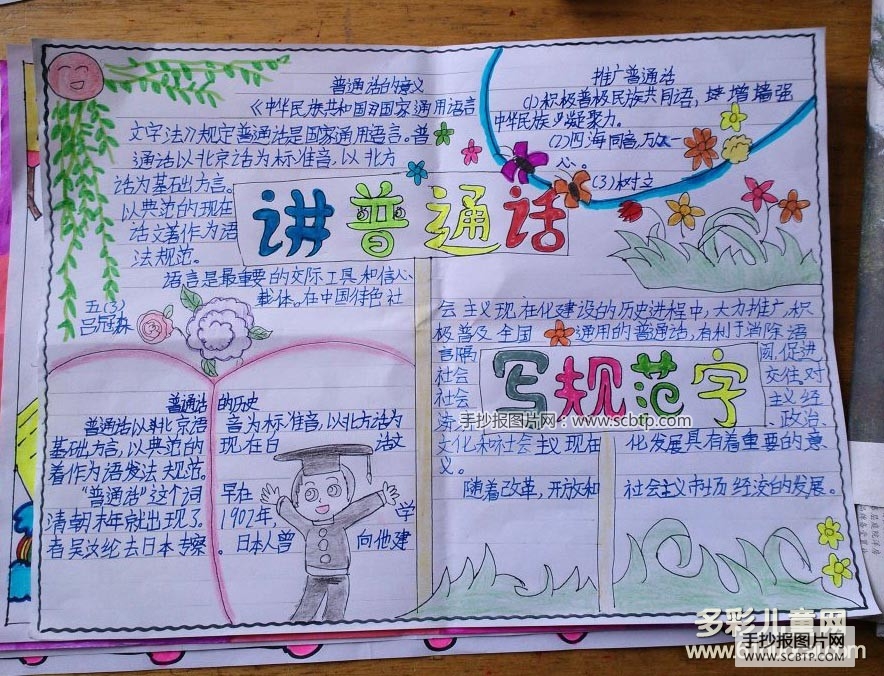 普通话的意义
《中华民族共和国》国家通用语言
文字法》规定普通话是国家通用语言。普
通话以北京话为标准音,以北方
话为基础方言。
以典范的现在
话文著作为语
法规范。
语言是最重要的交际工具和信心
载体。在中国特色社
五(3)
吕冠霖
推广普通话
(1)积极普极民族共同语,增墙强
中华民族凝聚力。
(2)四海同音,万众一
心。
(3)树立
讲普通话
会主义现在化建设的历史进程中,大力推广,积
极普及全国通用的普通话,有利于消除语
言隔阂,促进
社会交往。对
社会主义经
济、政治、
文化和社会主义现在化发展具有着重要的意
义。
随着改革,开放和社会主义市场经济的发展。
写规范字
手抄报图片网:www.scbtp.com
普通话的历史
普通话以北京语音为标准音,以北方话为
基础方言,以典范的现在白话文
着作为语发法规范。
"普通话"这个词早在
清朝末年就出现了。1902年,学
者吴汝纶去日本考察。日本人曾向他建
多彩儿童网
手抄报图片网
WWW.SCBTP.COM